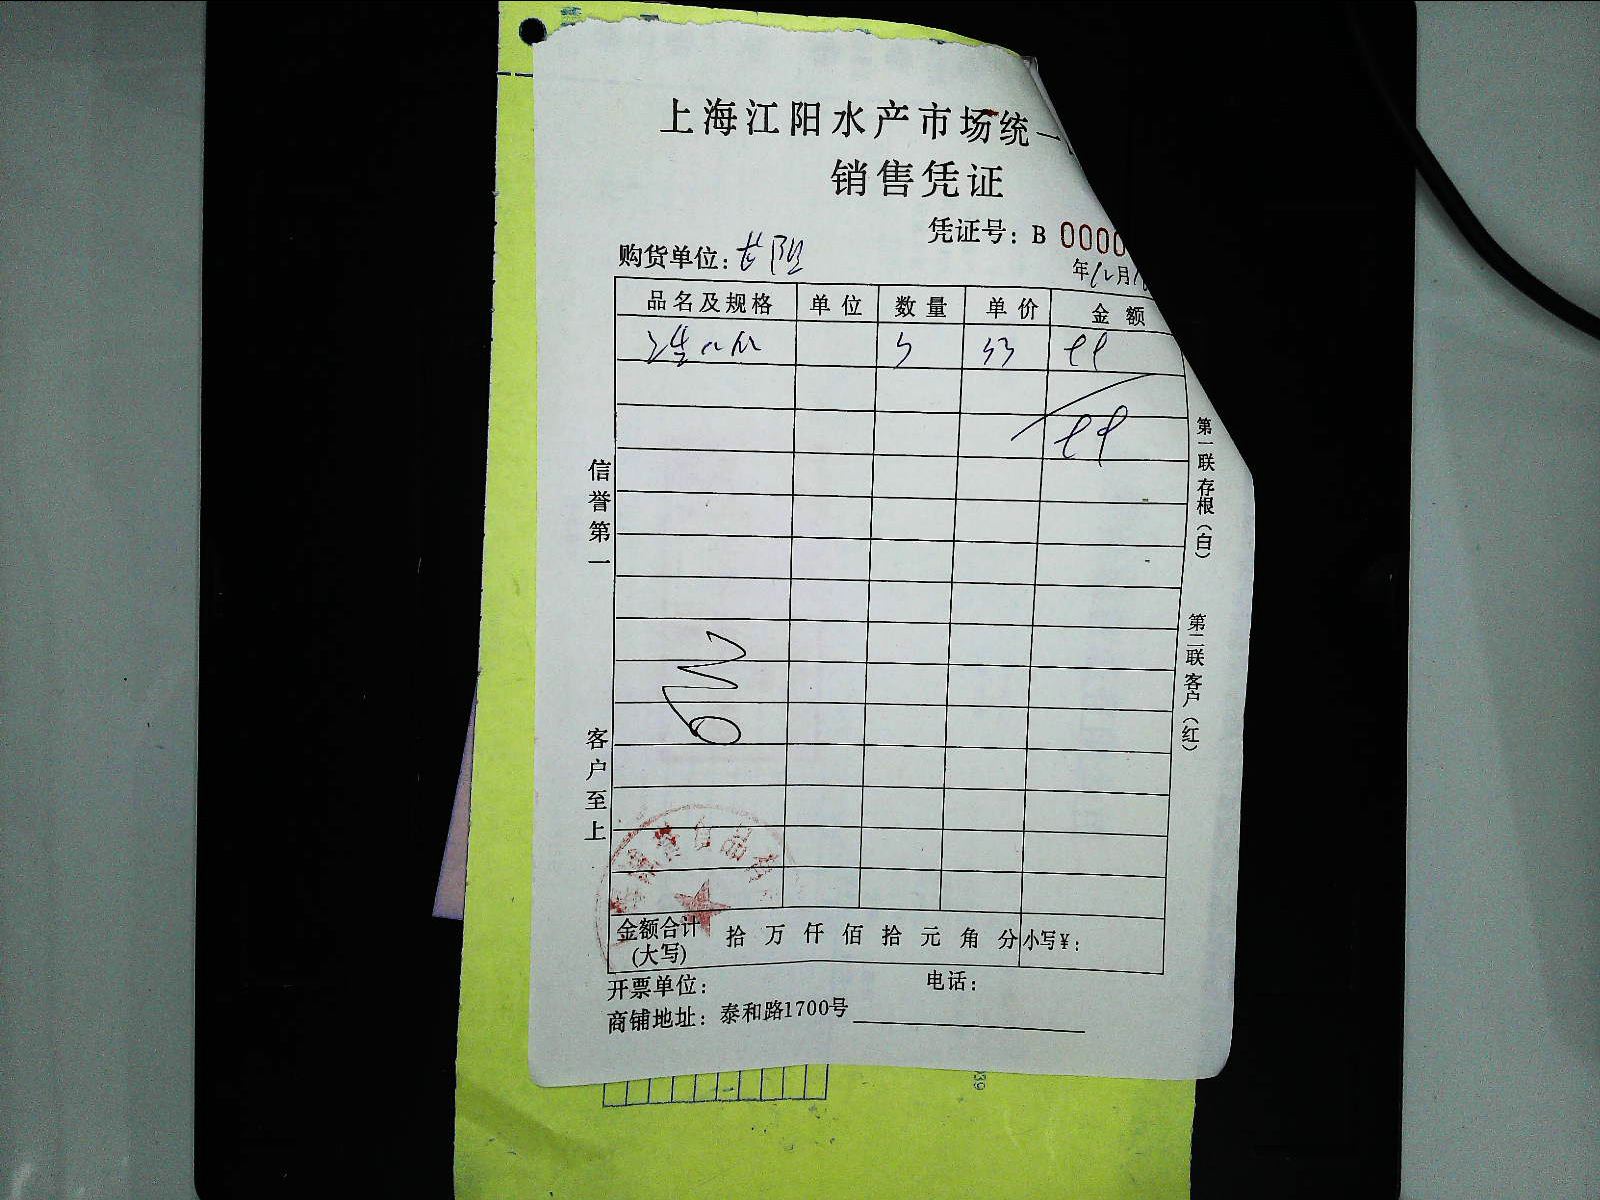 上海江阳水产市场统一
销售凭证
凭证号：B 0000
购货单位：长阳
年12月
品名及规格 单位 数量 单价 金额
5 53
信誉第一
客户至上
第一联 存根（白）
第二联 客户（红）
金额合计 拾 万 仟 佰 拾 元 角 分 小写￥：
(大写)
开票单位： 电话：
商铺地址：泰和路1700号